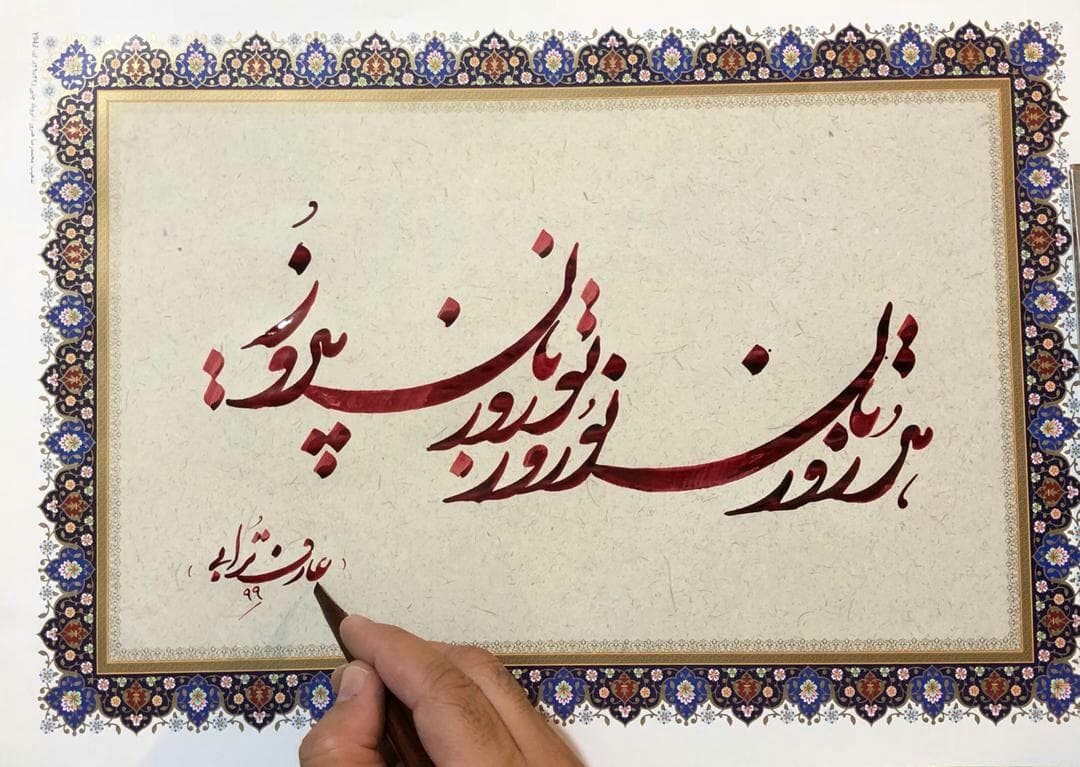 هر روزتان نوروز نوروزتان پیروز
( عارف ترابی )
۹۹